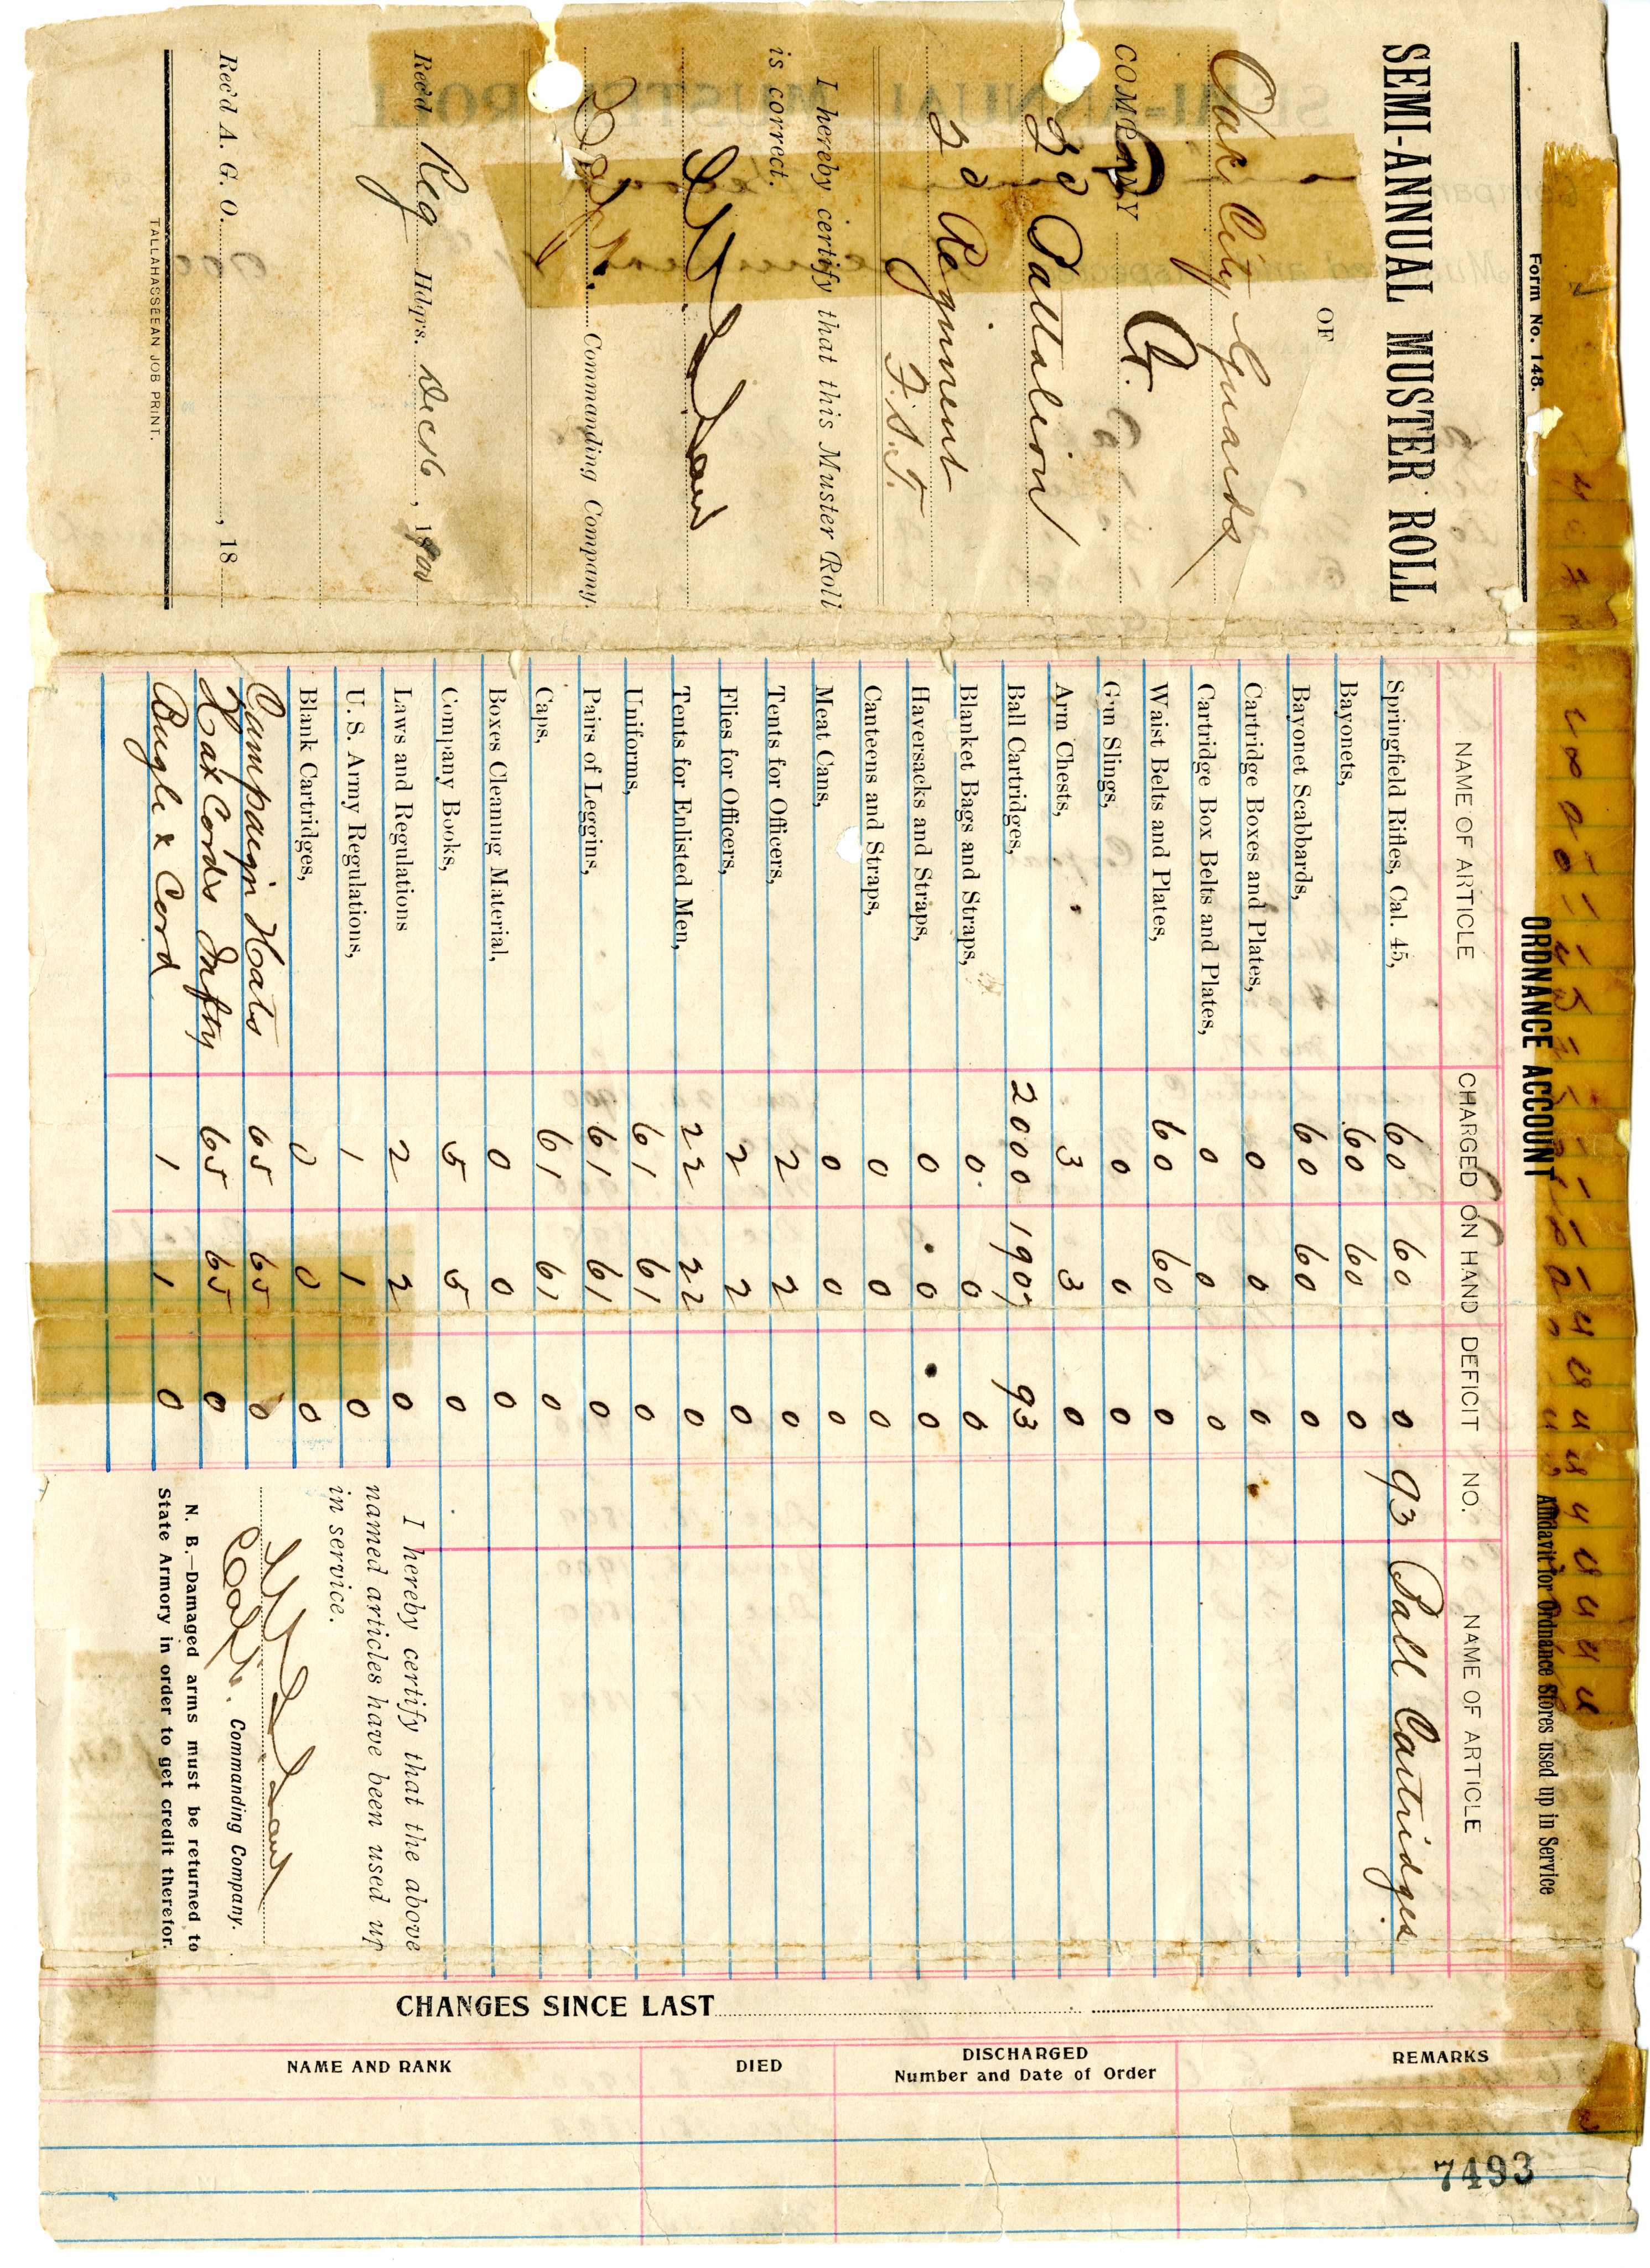 Form No. 148.
SEMI-ANNUAL MUSTER ROLL
OF
City Guards
COMPANY C Co.
2d Battalion
2d Regiment
F.S.T.
I hereby certify that this Muster Roll
is correct.
Capt. Commanding Company.
Rec'd Reg Hdqrs. Dec 16, 1900
Rec'd A. G. O. , 18
TALLAHASSEEAN JOB PRINT.
ORDNANCE ACCOUNT
NAME OF ARTICLE CHARGED ON HAND DEFICIT
Springfield Rifles, Cal. 45, 60 60 0
Bayonets, 60 60 0
Bayonet Scabbards, 60 60 0
Cartridge Boxes and Plates, 0 0 0
Cartridge Box Belts and Plates, 0 0 0
Waist Belts and Plates, 60 60 0
Gun Slings, 0 0 0
Arm Chests, 3 3 0
Ball Cartridges, 2000 1907 93
Blanket Bags and Straps, 0 0 0
Haversacks and Straps, 0 0 0
Canteens and Straps, 0 0 0
Meat Cans, 0 0 0
Tents for Officers, 2 2 0
Flies for Officers, 2 2 0
Tents for Enlisted Men, 22 22 0
Uniforms, 61 61 0
Pairs of Leggins, 61 61 0
Caps, 61 61 0
Boxes Cleaning Material, 0 0 0
Company Books, 5 5 0
Laws and Regulations 2 2 0
U. S. Army Regulations, 1 1 0
Blank Cartridges, 0 0 0
Campaign Hats 65 65 0
Hat Cords Infty 65 65 0
Bugle & Cord 1 1 0
Affidavit for Ordnance Stores used up in Service
NO. NAME OF ARTICLE
93 Ball Cartridges
I hereby certify that the above
named articles have been used up
in service.
Capt. Commanding Company.
N. B.—Damaged arms must be returned to
State Armory in order to get credit therefor.
CHANGES SINCE LAST
NAME AND RANK DIED DISCHARGED REMARKS
Number and Date of Order
7493